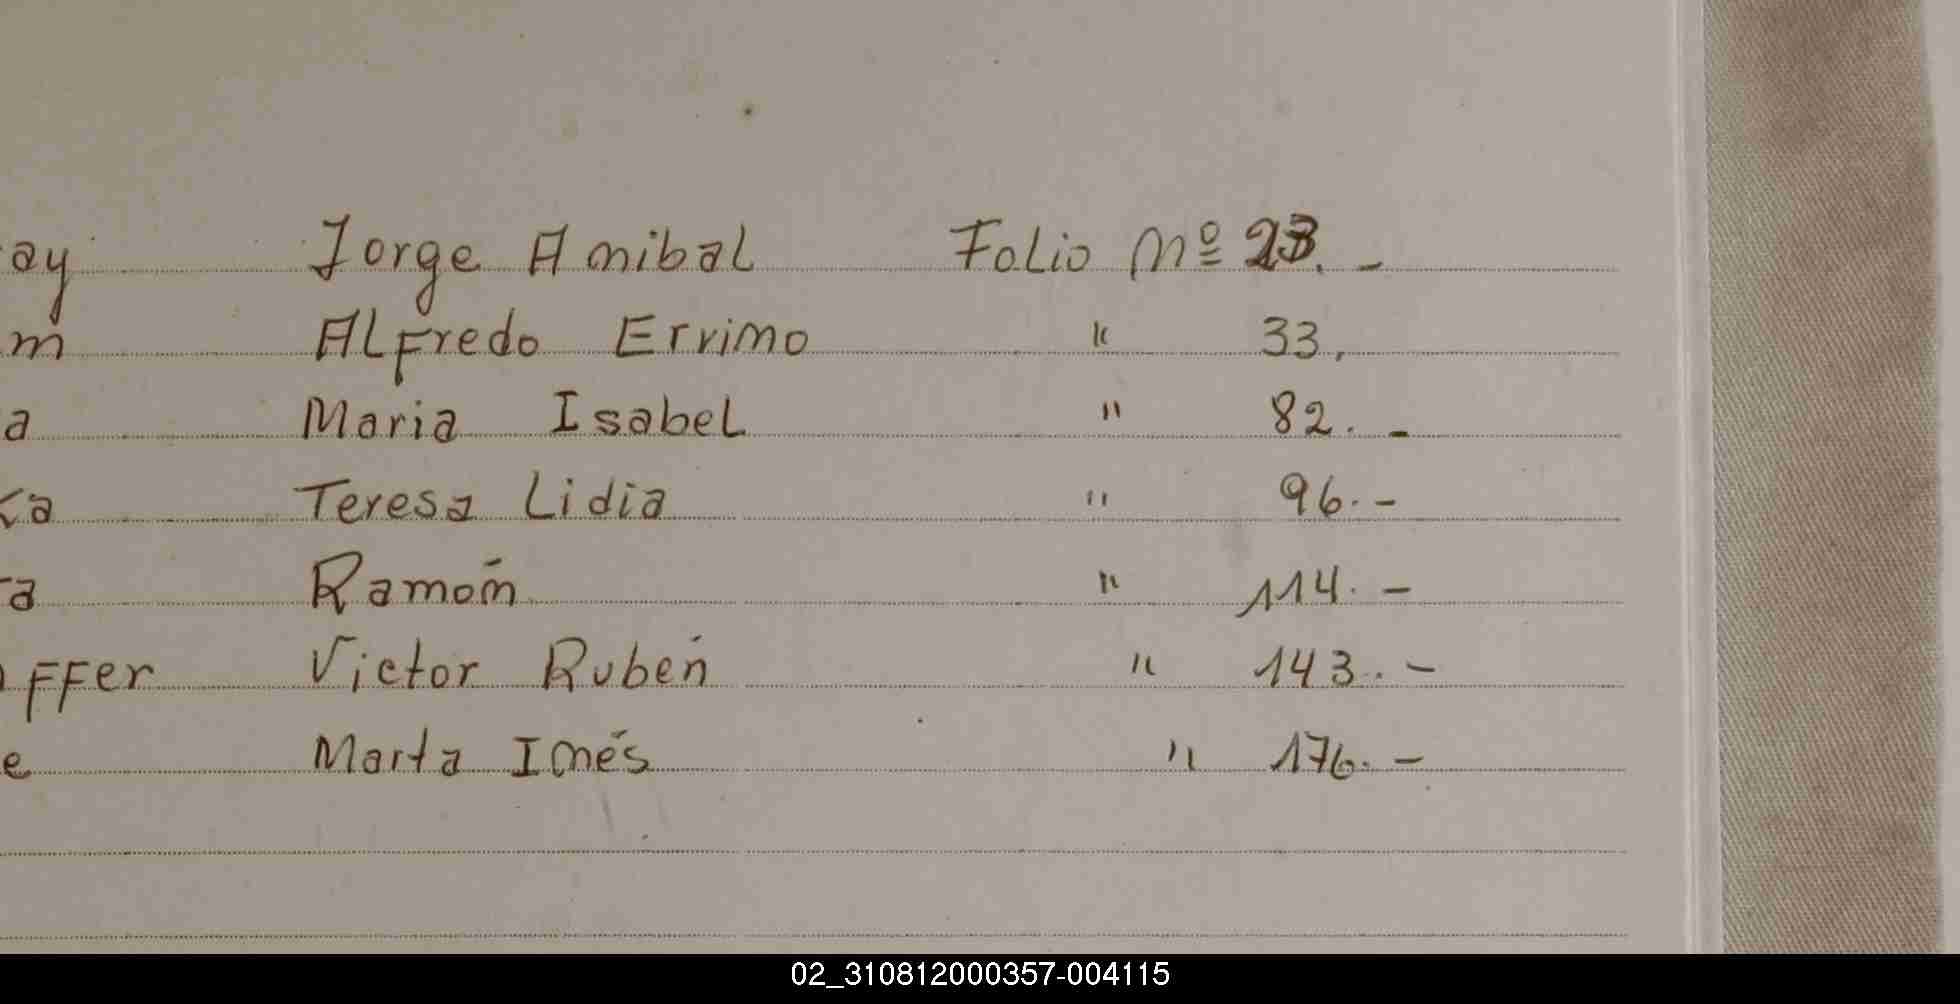 ay Jorge Anibal Folio Nº 23.-
m Alfredo Ervino " 33.
a Maria Isabel " 82.-
ka Teresa Lidia " 96.-
ra Ramón " 114.-
offer Victor Rubén " 143.-
e Marta Inés " 176.-
02_310812000357-004115